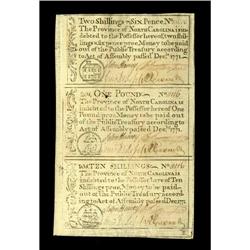 Two Shillings & Six Pence. No.
The Province of North Carolina is in-
debted to the Possessor hereof, two shil-
lings six pence proc. Money to be paid
out of the Public Treasury according to
Act of Assembly passed Dec. 1771.
One Pound. No.
The Province of North Carolina is
indebted to the Possessor hereof One
Pound proc. Money to be paid out
of the Public Treasury according to
Act of Assembly passed Dec. 1771.
Ten Shillings. No.
The Province of North Carolina is
indebted to the Possessor here of Ten
Shillings proc. Money to be paid
out of the Public Treasury according
to Act of Assembly passed Dec. 1771